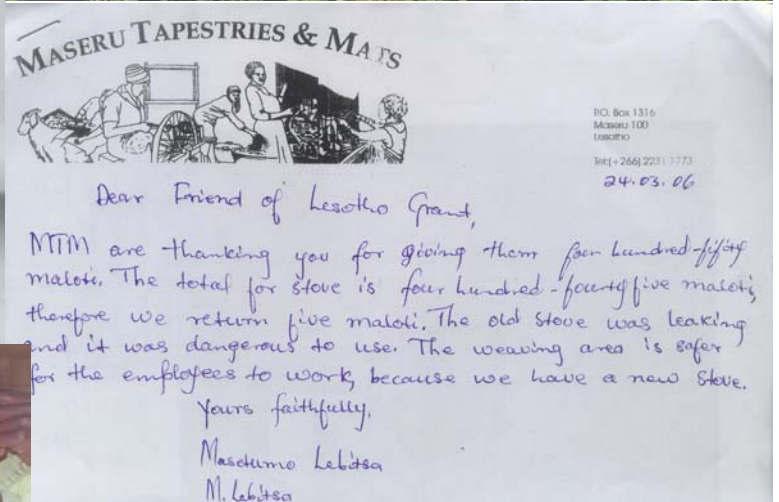 MASERU TAPESTRIES & MATS
P.O. Box 1316
Maseru 100
Lesotho
Tel:(+266) 2231 1773
24.03.06
Dear Friend of Lesotho Grant,
MTM are thanking you for giving them four hundred-fifity
maloti. The total for stove is four hundred-fourty five maloti,
therefore we return five maloti. The old stove was leaking
and it was dangerous to use. The weaving area is safer
for the employees to work, because we have a new stove.
Yours faithfully,
Lebitsa
M. Lebitsa